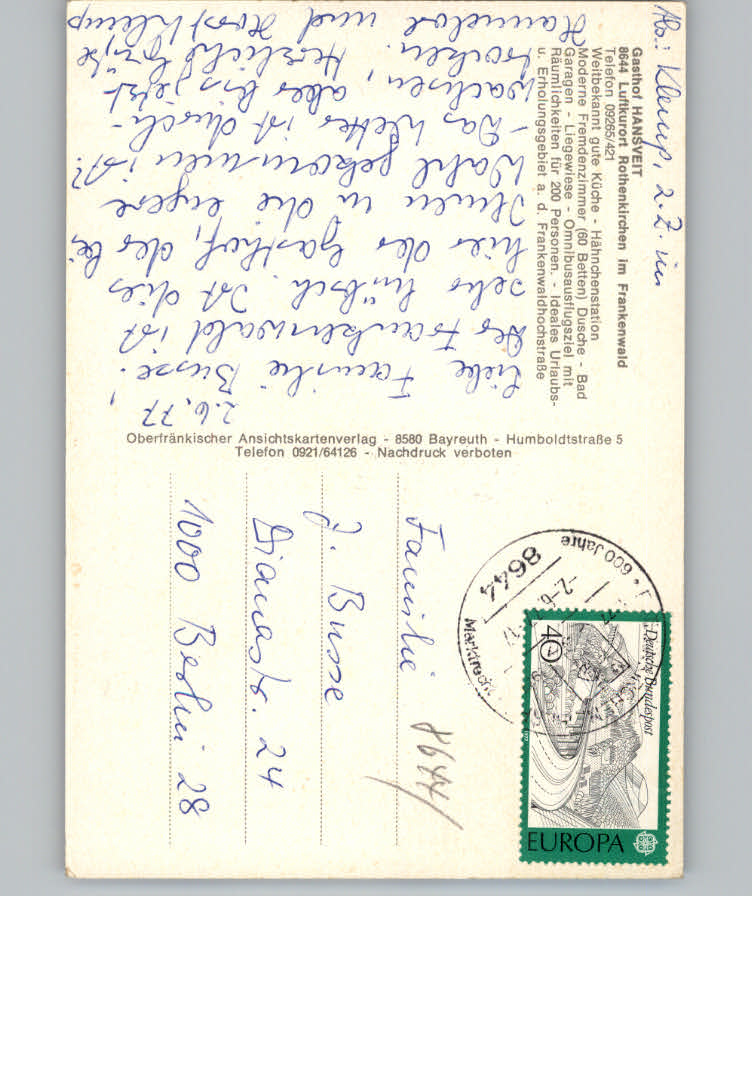 Ab.: Klemp, z.Z. im
Gasthof HANSVEIT
8644 Luftkurort Rothenkirchen im Frankenwald
Telefon 09265/421
Weitbekannt gute Küche - Hähnchenstation
Moderne Fremdenzimmer (60 Betten) Dusche - Bad
Garagen - Liegewiese - Omnibusausflugsziel mit
Räumlichkeiten für 200 Personen. - Ideales Urlaubs-
u. Erholungsgebiet a. d. Frankenwaldhochstraße
2.6.77
Liebe Familie Busse!
Der Frankenwald ist
sehr hübsch. Ist dies
hier der Gasthof, der bei
Ihnen in die engere
Wahl gekommen ist?
- Das Wetter ist durch-
wachsen, aber bis jetzt
trocken. Herzliche Grüße
Hannelore und Horst Klemp
Oberfränkischer Ansichtskartenverlag - 8580 Bayreuth - Humboldtstraße 5
Telefon 0921/64126 - Nachdruck verboten
600 Jahre
8644
Marktrecht
Deutsche Bundespost
40
1977
EUROPA
Familie
J. Busse
Dianastr. 24
1000 Berlin 28
8644